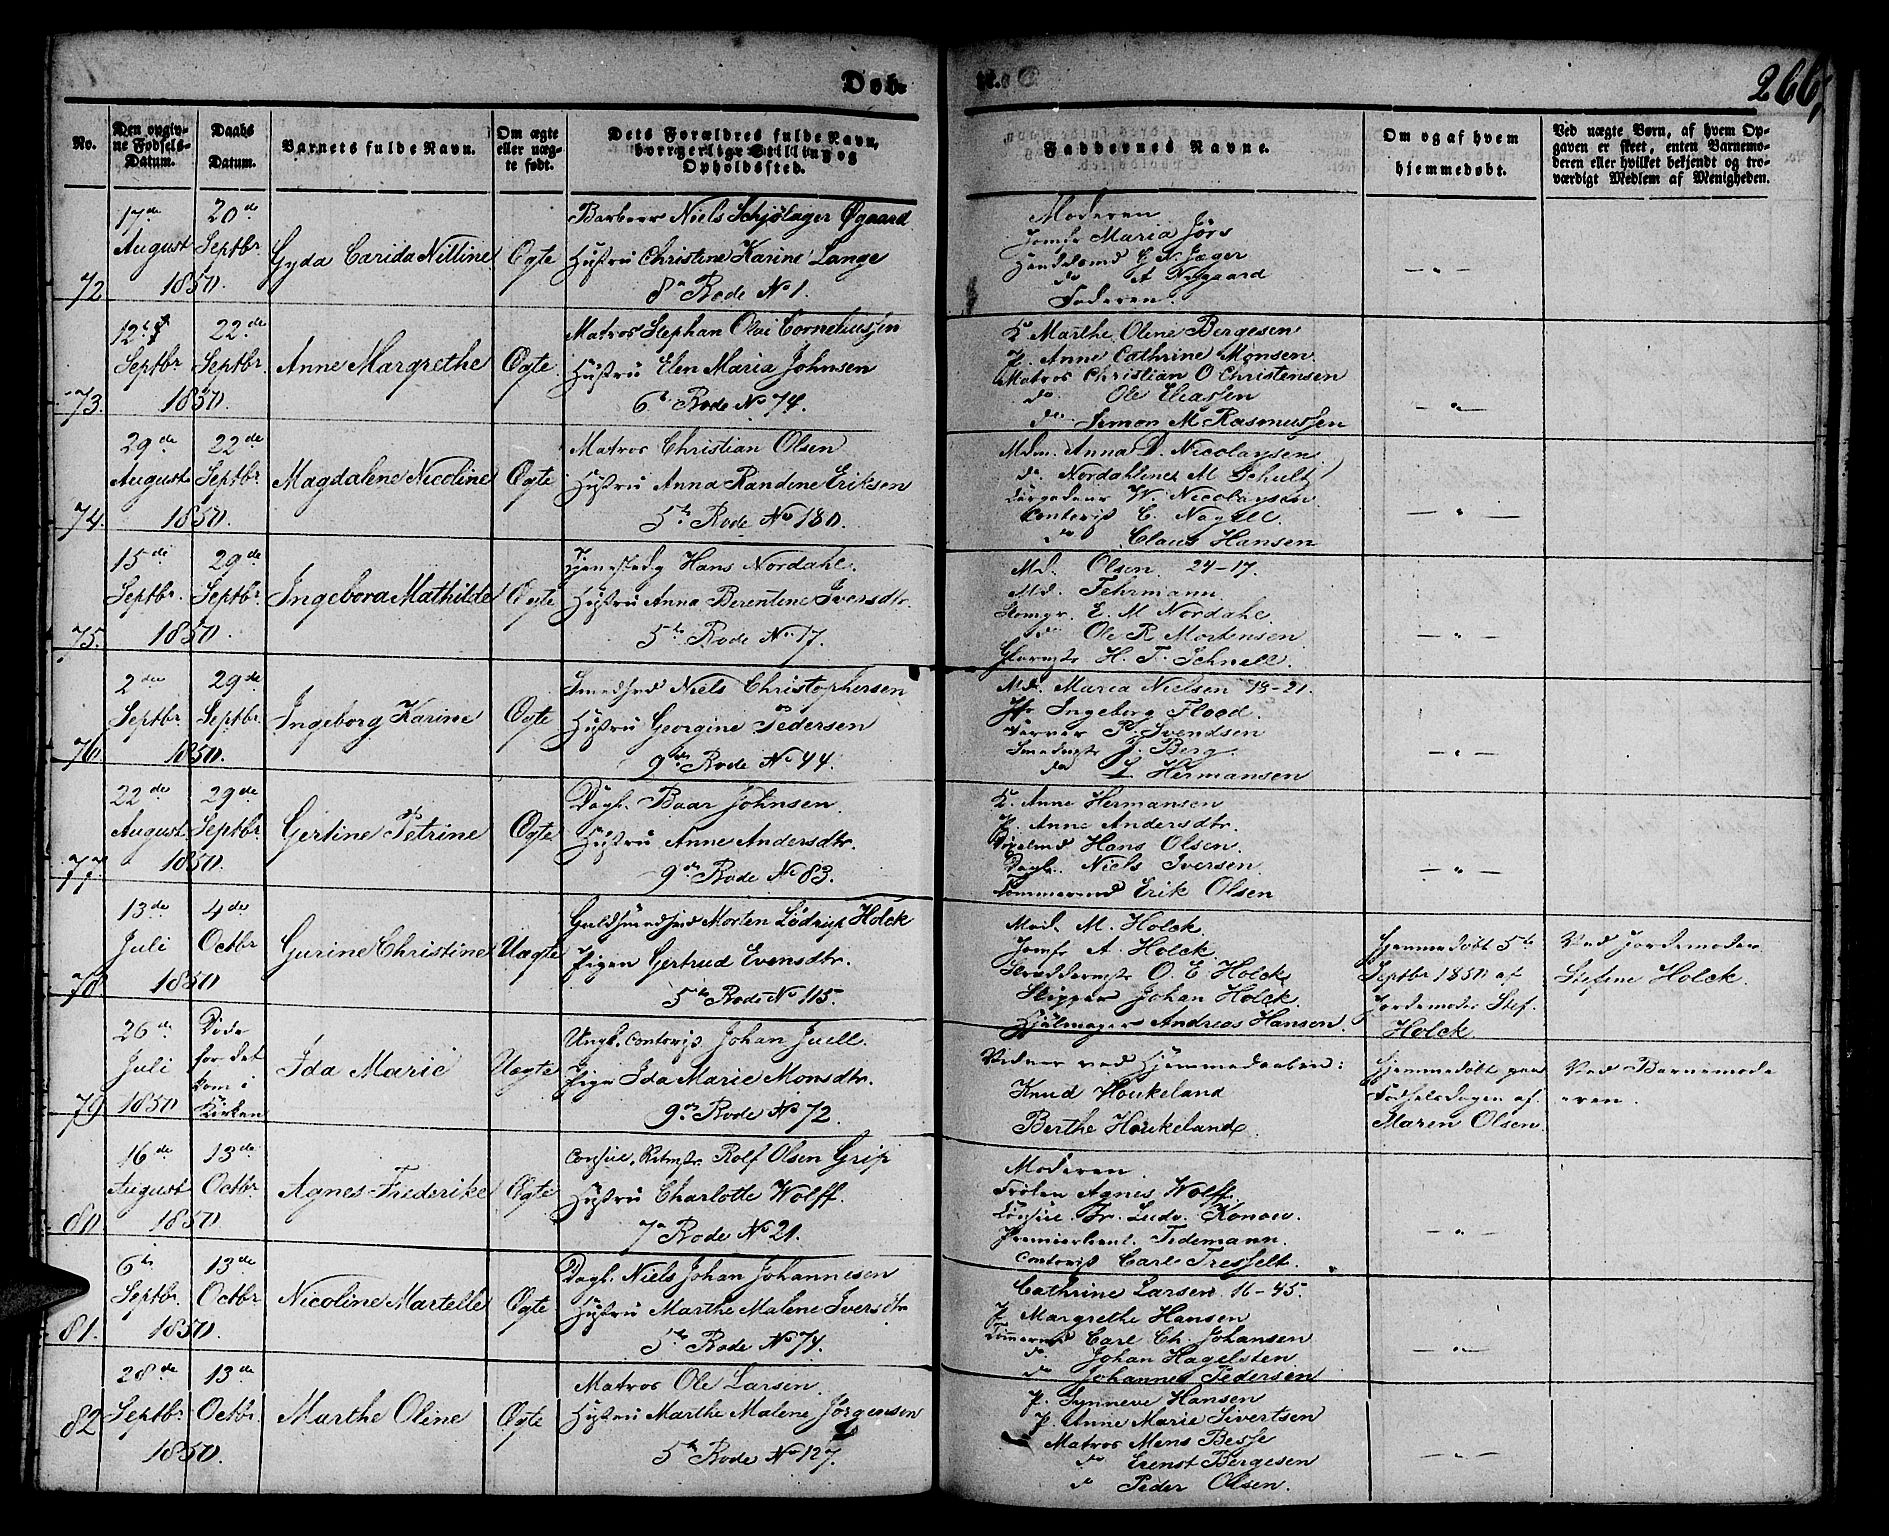 Døb.
266,
No.
Den opgiv-
ne Fødsels-
Datum.
Daabs
Datum.
Barnets fulde Navn.
Om ægte
eller uæg-
te født.
Dets Forældres fulde Navn,
borgerlige Stilling og
Opholdssted.
Faddernes Navne.
Om og af hvem
hjemmedøbt.
Ved uægte Børn, af hvem Op-
gaven er skeet, enten Barnemo-
deren eller hvilket bekjendt og tro-
værdigt Medlem af Menigheden.
72
17de August 1850.
20de Septbr
Gyda Carida Nilline
Ægte
Barbeer Niels Schjölager Øgaard
Hustru Christine Karine Lange
8de Rode No 1.
Moderen
Jomfr Maria Jörs
C N. Jæger
do A
Faderen.
— " —
73.
12te Septbr 1850.
22de Septbr.
Anne Margrethe
Ægte
Matros Stephan Olai Corneliussen
Hustru Elen Maria Johnsen
6te Rode No 74.
K. Marthe Oline Bergesen
P. Anne Cathrine Monsen.
Matros Christian O Christensen
do Ole Eliassen
do Simon M Rasmussen
— " —
74.
29de August 1850.
22de Septbr
Magdalene Nicoline
Ægte
Matros Christian Olsen
Hustru Anna Randine Eriksen
5te Rode No 180.
Mdm. Anna D. Nicolaysen
do Nordahline M Schultz
W. Nicolaysen
Contorist C. Nagell
do Claus Hansen
— " —
75.
15de Septbr. 1850.
29de Septbr.
Ingebora Mathilde
Ægte
Hans Nordahl.
Hustru Anna Berentine Iversdtr.
5te Rode No 17.
Md. Olsen 24-17.
Md. Fehrmann
E. M Nordahl
do Ole R. Mortensen
H. T. Schnell.
— " —
76.
2den Septbr. 1850.
29de Septbr
Ingeborg Karine
Ægte
Smedsvd Niels Christophersen
Hustru Georgine Pedersen
9de Rode No 44.
Md. Maria Nielsen 18-21.
Jfr Ingeborg Flood.
P. Svendsen
J. Berg.
do L. Hermansen
— " —
77.
22de August. 1850.
29de Septbr.
Gertine Petrine
Ægte
Dagl. Baar Johnsen.
Hustru Anne Andersdtr.
9de Rode No 83.
K. Anne Hermansen
P. Anne Andersdtr.
Hans Olsen.
Dagl. Niels Iversen.
Tømmermd Erik Olsen
— " —
78
13de Juli 1850
4de Octbr
Gurine Christine
Uægte
Guldsmedsvd Morten Lödvigs Holck
Pigen Gertrud Evensdtr.
5te Rode No 115.
Mad. M. Holck.
Jomfr A. Holck.
O. E. Holck
Skipper Johan Holck.
Hjülmager Andreas Hansen.
Hjemmedøbt 5te
Septbr 1850 af
Jordemoder Stef.
Holck
Ved Jordemoder
Stefine Holck.
79
26de Juli 1850
Døde
før det
kom i
Kirken
Ida Marie
Uægte
Ungk. Contorist Johan Juell.
Pige Ida Marie Monsdtr.
9de Rode No 72.
Vidner ved Hjemmedaaben:
Knud Houkeland
Berthe Houkeland.
Hjemmedøbt paa
Fødselsdagen af
Maren Olsen
Ved Barnemode
eren.
80
16de August 1850
13de Octbr
Agnes Frederike
Ægte
Consul, Ritmstr. Rolf Olsen Grip
Hustru Charlotte Wolff.
7de Rode No 21.
Moderen
Frøken Agnes Wolff.
Consul. Fr. Ludv. Konow.
Premierlieut. Tidemann.
Contorist Carl Tresselt.
— " —
81.
6te Septbr. 1850.
13de Octbr
Nicoline Martelle
Ægte
Dagl. Niels Johan Johannesen
Hustru Marthe Malene Iversdtr
5te Rode No 74.
Cathrine Larsen 16-45.
P. Margrethe Hansen
Tömmermd Carl Ch. Johansen
do Johan Hagelsten
do Johannes Pedersen
— " —
82
28de Septbr 1850.
13de Octbr
Marthe Oline
Ægte
Matros Ole Larsen.
Hustru Marthe Malene Jørgensen
5te Rode No 127.
P. Synneve Hansen
P. Anne Marie Sivertsen
Matros Mons Besse
do Erenst Bergesen
do Peder Olsen.
— " —